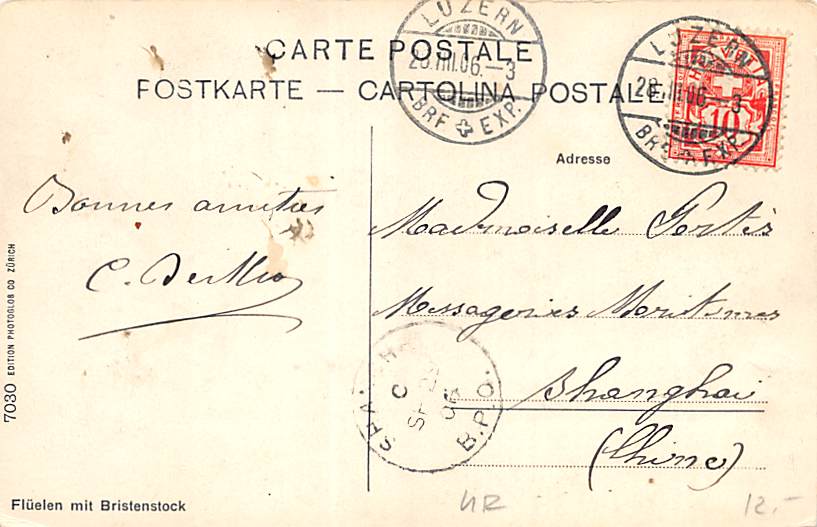 CARTE POSTALE
POSTKARTE — CARTOLINA POSTALE
LUZERN
28.III.06.—3
BRF EXP.
LUZERN
28.III.06—3
BRF EXP.
10
Adresse
Bonnes amitiés
Mademoiselle
Messageries Maritimes
Shanghai
(Chine)
C
B.P.O.
7030 EDITION PHOTOGLOB CO ZÜRICH
Flüelen mit Bristenstock
12.-